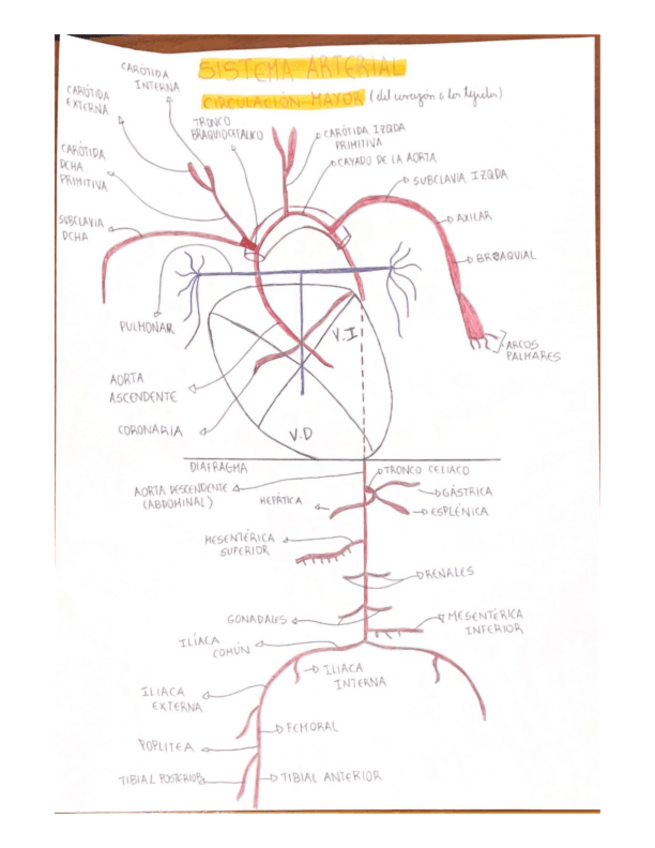 SISTEMA ARTERIAL
CIRCULACIÓN MAYOR (del corazón a los tejidos)
CARÓTIDA
INTERNA
CARÓTIDA
EXTERNA
TRONCO
BRAQUIOCEFALICO
CARÓTIDA IZQDA
PRIMITIVA
CAYADO DE LA AORTA
CARÓTIDA
DCHA.
PRIMITIVA
SUBCLAVIA IZQDA
SUBCLAVIA
DCHA
AXILAR
BRAQUIAL
PULMONAR
V.I
ARCOS
PALMARES
AORTA
ASCENDENTE
CORONARIA
V.D
DIAFRAGMA
TRONCO CELIACO
AORTA DESCENDENTE
(ABDOMINAL)
HEPÁTICA
GÁSTRICA
ESPLÉNICA
MESENTÉRICA
SUPERIOR
RENALES
GONADALES
MESENTÉRICA
INFERIOR
ILÍACA
COMÚN
ILIACA
INTERNA
ILIACA
EXTERNA
FEMORAL
POPLITEA
TIBIAL POSTERIOR
TIBIAL ANTERIOR